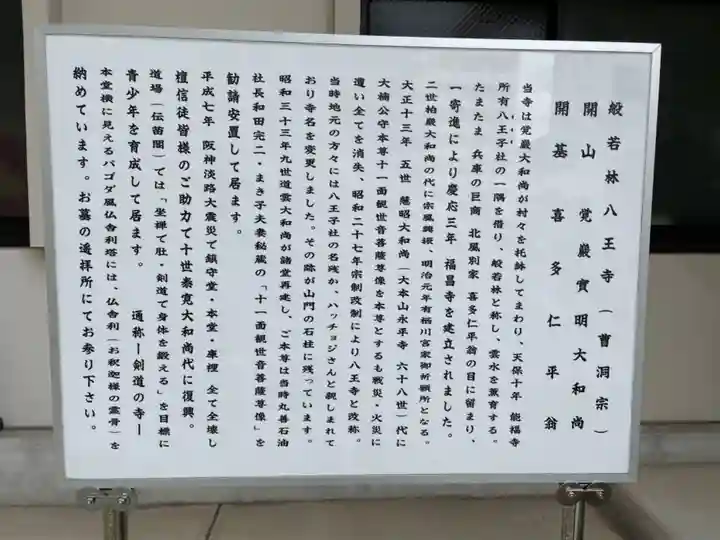 般若林八王寺（曹洞宗）
開山　覚巌實明大和尚
開基　喜多仁平翁
当寺は覚巌大和尚が村々を托鉢してまわり、天保十年　能福寺
所有八王子社の一隅を借り、般若林と称し、雲水を薫育する。
たまたま　兵庫の巨商　北風別家　喜多仁平翁の目に留まり、
一寄進により慶応三年　福昌寺を建立されました。
二世柏巌大和尚の代に宗風興振、明治元年有栖川宮家御祈願所となる。
大正十三年　五世　慧昭大和尚（大本山永平寺　六十八世）代に
大楠公守本尊十一面観世音菩薩尊像を本尊とするも戦災、火災に
遭い全てを消失、昭和二十七年宗制改制により八王寺と改称。
当時地元の方々には八王子社の名残か、ハッチョジさんと親しまれて
おり寺名を変更しました。その跡が山門の石柱に残っています。
昭和三十三年九世道雲大和尚が諸堂再建し、ご本尊は当時丸善石油
社長和田完二・まき子夫妻秘蔵の「十一面観世音菩薩尊像」を
勧請安置して居ます。
平成七年　阪神淡路大震災で鎮守堂・本堂・庫裡　全て全壊し
檀信徒皆様のご助力て十世泰寛大和尚代に復興。
道場（伝苗閣）では「坐禅で肚・剣道で身体を鍛える」を目標に
青少年を育成して居ます。　通称ー剣道の寺ー
本堂横に見えるパゴダ風仏舎利塔には、仏舎利（お釈迦様の霊骨）を
納めています。お墓の遥拝所にてお参り下さい。